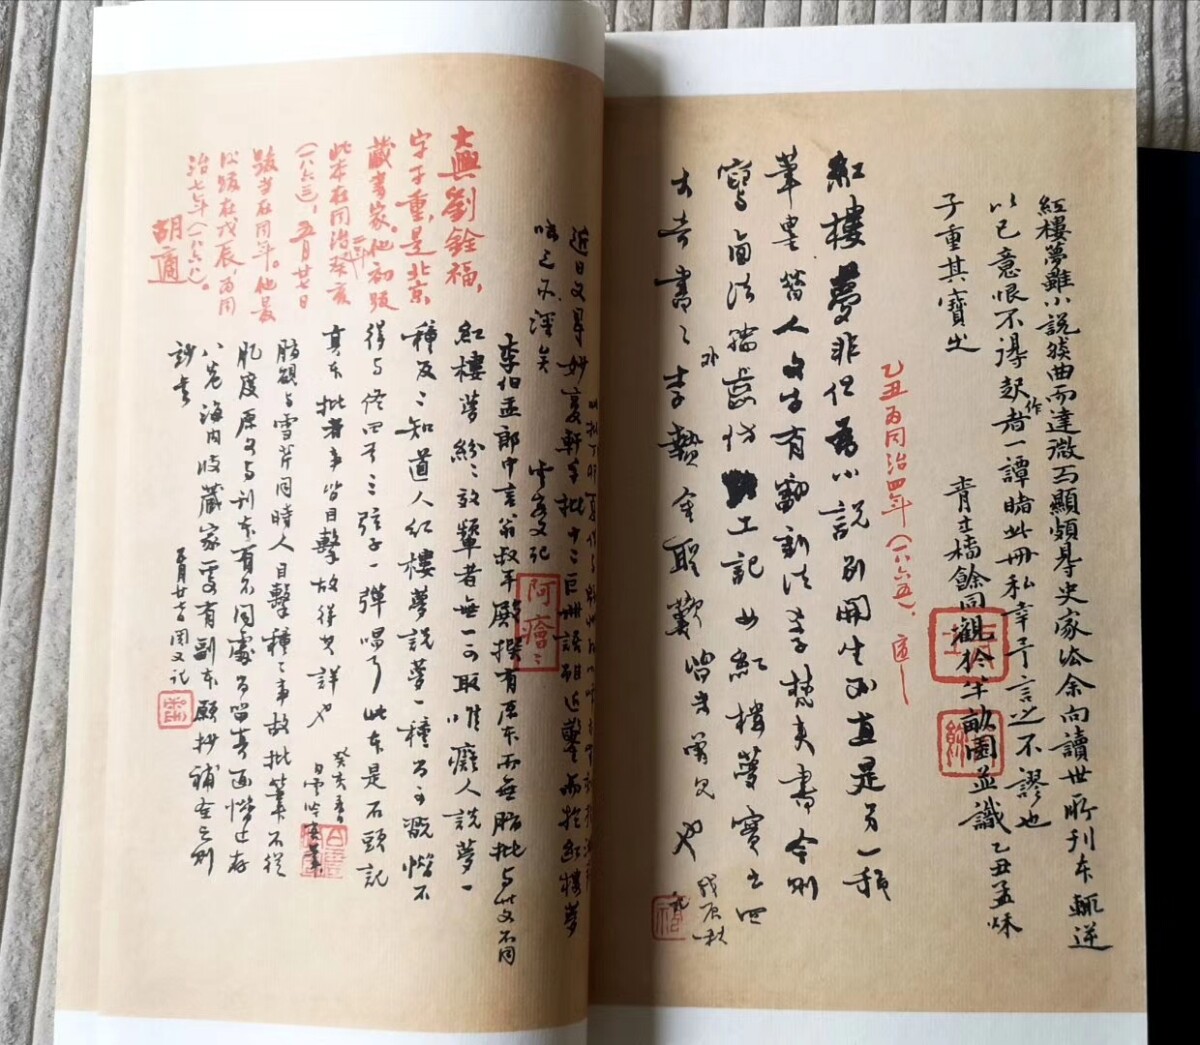 紅樓夢雖小說然曲而達微而顯頗得史家法余向讀世所刊本輒逆
以己意恨不得起作者一譚睹此冊私幸予言之不謬也
子重其寶之
青士椿餘同觀於半畝園並識乙丑孟秋
乙丑為同治四年(一八六五)。適
紅樓夢非但為小說別開生面直是另一種
筆墨昔人文字有翻新法學梵夫書今則
寫西法輪齒仿工記如紅樓夢實出四
大奇書之外李贄金聖歎皆未曾見也
戊辰秋記
福
近日又得妙復軒手批十二巨冊語雖近鑿而於紅樓夢
味之亦深矣
雲客又記
阿癐癐
李伯孟郎中言翁叔平殿撰有原本而無脂批與此文不同
紅樓夢紛紛效顰者無一可取唯癡人說夢一
種及二知道人紅樓夢說夢一種尚可玩惜不
得與佟四哥三弦子一彈唱耳此本是石頭記
真本批者事皆目擊故得其詳也
癸亥春日白雲吟客筆
脂硯與雪芹同時人目擊種種事故批筆不從
臆度原文與刊本有不同處尚留真面惜止存
八卷海內收藏家處有副本願抄補全之則
妙矣
五月廿七日閱又記
大興劉銓福,
字子重,是北京
藏書家。他初跋
此本在同治二年癸亥
(一八六三),五月廿七日
跋當在同年。他最
後跋在戊辰,為同
治七年(一八六八)。
胡適